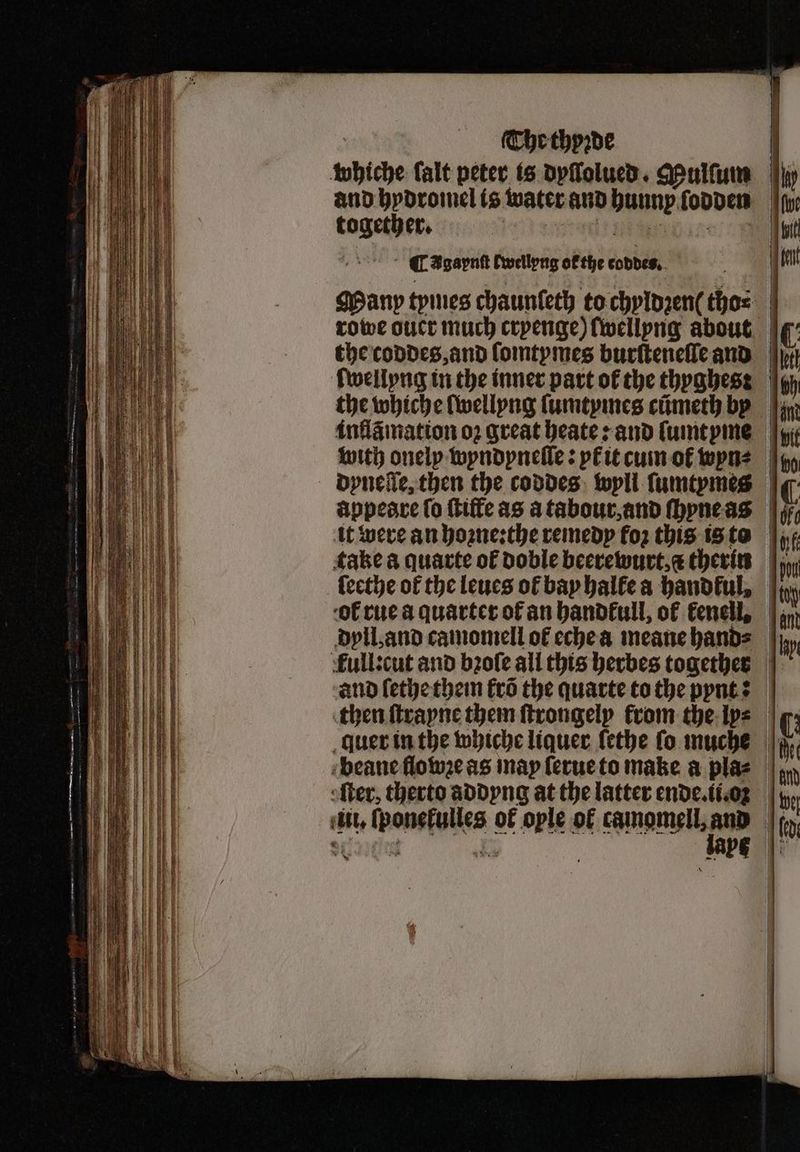 The thyrde
whiche ſalt peter is dyſſolued. Mulſum
and hydromel is water and hunny ſodden
together.
¶ Agaynſt ſwellyng of the coddes.
Many tymes chaunſeth to chyldꝛen( tho⸗
rowe ouer much cryenge) ſwellyng about
the coddes,and ſomtymes burſteneſſe and
ſwellyng in the inner part of the thyghes:
the whiche ſwellyng ſumtymes cūmeth by
inflāmation oꝛ great heate : and ſumtyme
with onely wyndyneſſe : yf it cum of wyn⸗
dyneſſe, then the coddes wyll ſumtymes
appeare ſo ſtiffe as a tabour,and ſhyne as
it were an hoꝛne:the remedy foꝛ this is to
take a quarte of doble beerewurt,⁊ therin
ſeethe of the leues of bay halfe a handful,
of rue a quarter of an handfull, of fenell,
dyll,and camomell of eche a meane hand⸗
full:cut and bꝛoſe all this herbes together
and ſethe them frō the quarte to the pynt :
then ſtrayne them ſtrongely from the ly⸗
quer in the whiche liquer ſethe ſo muche
beane flowꝛe as may ſerue to make a pla⸗
ſter, therto addyng at the latter ende.ii.oꝛ
iii, ſponefulles of oyle of camomell, and
laye